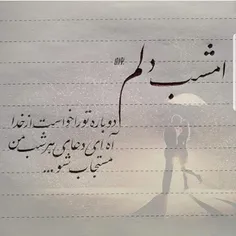 امشب دلم
دوباره تو را خواست از خدا
آه ای دعای هر شب من
مستجاب شو...